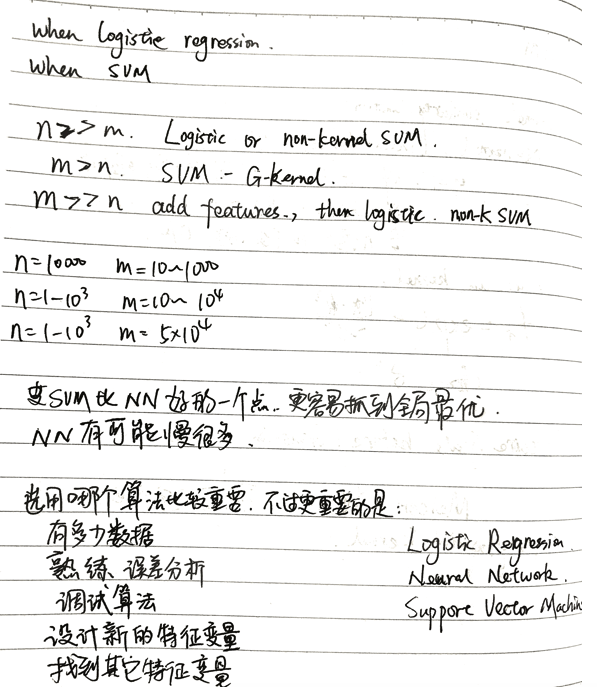 When logistic regression.
When SVM
n>>m. Logistic or non-kernel SVM.
m>n. SVM - G-kernel.
m>>n add features., then logistic. non-k SVM
n=10000 m=10~1000
n=1-10³ m=10~10⁴
n=1-10³ m=5×10⁴
SVM比NN好的一个点. 更容易抓到全局最优.
NN有可能慢很多.
选用哪个算法比较重要. 不过更重要的是:
有多少数据
熟练 误差分析
调试算法
设计新的特征变量
找到其它特征变量
Logistic Relgression.
Neural Network.
Suppore Vector Machin